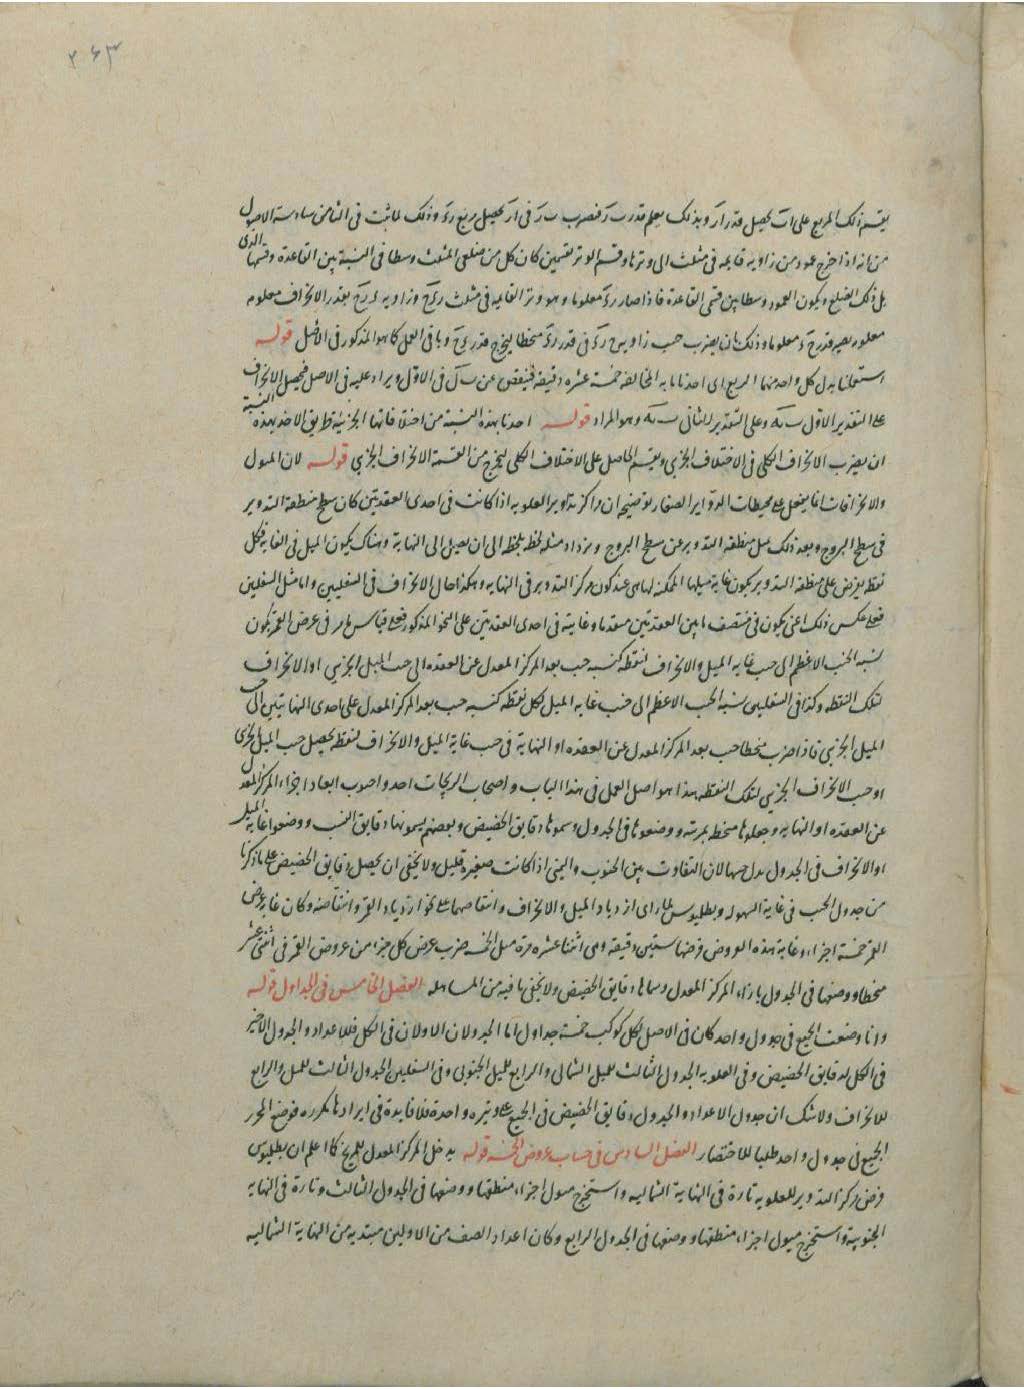 ۲۶۳
يقسم ذلك المربع على اب يحصل قدر ار وبذلك يعلم قدر ب ر فنضرب ب ر فى ار يحصل مربع رء وذلك لما ثبت فى الثامن سادسة الاصول
من انه اذا اخرج عمود من زاوية قايمة فى مثلث الى وترها وقسم الوتر بقسمين كان كل من ضلعى المثلث وسطا فى النسبة بين القاعدة وقسمها الذى
يلى ذلك الضلع ويكون العمود وسطا بين قسمى القاعدة فاذا صار رء معلوما وهو وتر القايمة فى مثلث رء ح وزاوية ء ر ح بقدر الانحراف معلومه
معلوم يصير قدر ح ء معلوما وذلك بان يضرب جيب زاويه ح ر ء فى قدر رء منحطا ليخرج قدر ء ح وباقى العمل كما هو المذكور فى الاصل قوله
استعملنا بدل كل واحد منهما الربع اى اخذنا ما به المخالفه خمسة عشره دقيقه فينقص عن ب ل فى الاول ويزاد عليه فى الاصل فيحصل الانحراف
على التقدير الاول ب يه وعلى التقدير الثانى ب مه وهو المراد قوله اخذنا بهذه النسبة من اختلافاتها الجزئية طريق الاخذ بهذه النسبة
ان يضرب الانحراف الكلى فى الاختلاف الجزئى ويقسم الحاصل على الاختلاف الكلى ليخرج من القسمة الانحراف الجزئى قوله لان الميول
والانحرافات انما يفعل على محيطات الدواير الصغار توضيحه ان مراكز تداوير العلويه اذا كانت فى احدى العقدتين كان سطح منطقة التدوير
فى سطح البروج وبعد ذلك يميل منطقه التدوير عن سطح البروج ويزداد ميله لحظه بلحظه الى ان يصل الى النهاية وهناك يكون الميل فى الغاية فكل
نقطه يفرض على منطقه التدوير يكون غاية ميلها الممكنه لها هى عند كون مركز التدوير فى النهايه وهكذا حال الانحراف فى السفليين واما ميل السفليين
فعلى عكس ذلك اعنى يكون فى منتصف ما بين العقدتين منعدما وغايته فى احدى العقدتين على النحو المذكور فعلى قياس ما مر فى عرض القمر يكون
نسبة الجيب الاعظم الى جيب غاية الميل والانحراف لنقطه كنسبة جيب بعد المركز المعدل عن العقده الى جيب الميل الجزئى او الانحراف
لتلك النقطه وكذا فى السفليين نسبة الجيب الاعظم الى جيب غاية الميل لكل نقطه كنسبه جيب بعد المركز المعدل على احدى النهايتين الى جيب
الميل الجزئى فاذا ضرب منحطا جيب بعد المركز المعدل عن العقده او النهاية فى جيب غاية الميل والانحراف لنقطه يحصل جيب الميل الجزئى
او جيب الانحراف الجزئى لتلك النقطه هذا هو اصل العمل فى هذا الباب واصحاب الزيجات اخذوا جيوب ابعاد اجزاء المركز المعدل
عن العقده او النهايه وجعلوها منحطه بمرتبه ووضعوها فى الجدول وسموها دقايق الحضيض وبعضهم يسمونها دقايق النسب ووضعوا غاية الميل
او الانحراف فى الجدول بدل جيبها لان التفاوت بين الجيوب والقسى اذا كانت صغيرة قليل ولا يخفى ان يحصل دقايق الحضيض على ما ذكرنا
من جدول الجيب فى غاية السهوله وبطلميوس لما راى ازدياد الميل والانحراف وانتقاصهما على نحو ازدياد القمر وانتقاصه وكان غاية عرض
القمر خمسة اجزاء وغاية هذه العروض فرضها ستين دقيقه وهى اثنتا عشره مرة مثل الخمسه ضرب عرض كل جزء من عروض القمر فى اثنى عشر
منحطا ووضعها فى الجدول بازاء المركز المعدل وسماها دقايق الحضيض ولا يخفى ما فيه من المساهله الفصل الخامس فى الجداول قوله
وانا وضعت الجميع فى جدول واحد كان فى الاصل لكل كوكب خمسة جداول اما الجدولان الاولان فى الكل فللاعداد والجدول الاخير
فى الكل لدقايق الحضيض وفى العلويه الجدول الثالث للميل الشمالى والرابع للميل الجنوبى وفى السفليين الجدول الثالث للميل والرابع
للانحراف ولا شك ان جدول الاعداد والجدول دقايق الحضيض فى الجميع على وتيره واحدة فلا فايدة فى ايرادها مكرره فوضع المحرر
الجميع فى جدول واحد طلبا للاختصار الفصل السادس فى حساب عروض الخمسه قوله يدخل المركز المعدل للمريخ كما اعلم ان بطلميوس
فرض مركز التدوير للعلويه تارة فى النهاية الشماليه واستخرج ميول اجزاء منطقتها ووضعها فى الجدول الثالث وتارة فى النهايه
الجنوبية واستخرج ميول اجزاء منطقتها ووضعها فى الجدول الرابع وكان اعداد الصف من الاولين مبتدية من النهاية الشماليه